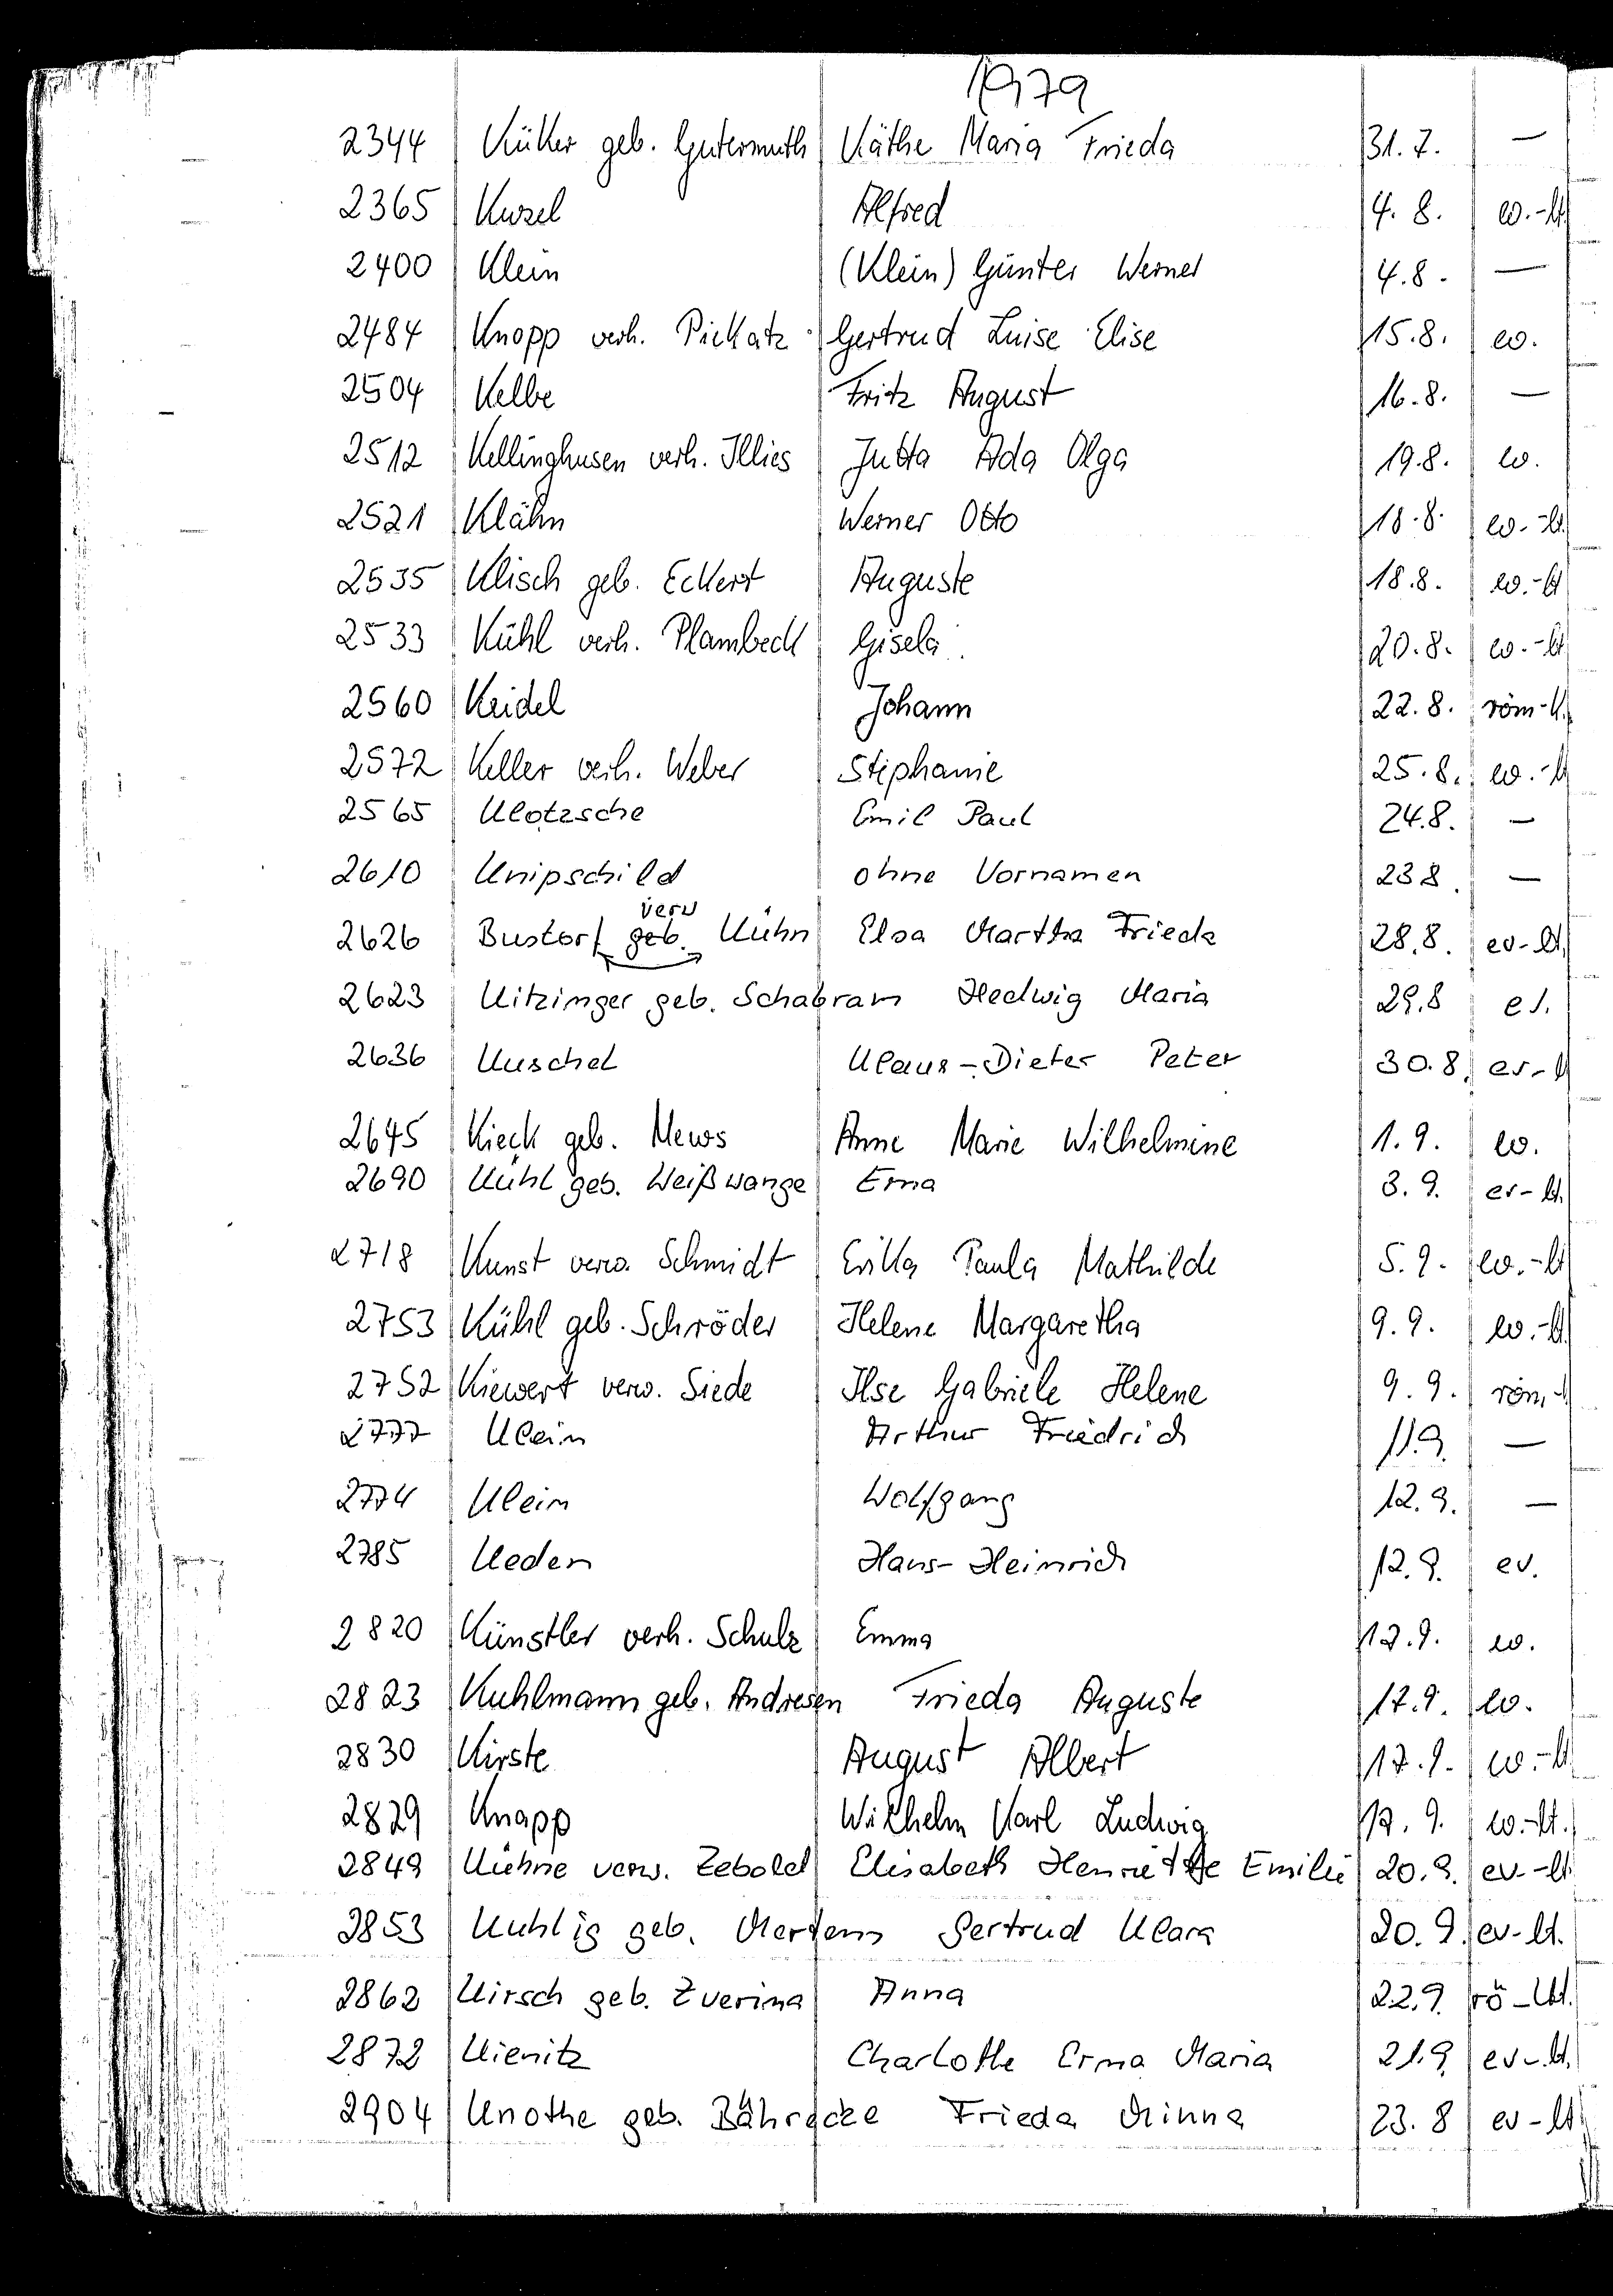 1979
2344 Küker geb. Gutermuth Käthe Maria Frieda 31.7. —
2365 Kurzel Alfred 4.8. ev.-lt
2400 Klein (Klein) Günter Werner 4.8. —
2484 Knopp verh. Piekatz Gertrud Luise Elise 15.8. ev.
2504 Kelbe Fritz August 16.8. —
2512 Kellinghusen verh. Illies Jutta Ada Olga 19.8. ev.
2521 Klähn Werner Otto 18.8. ev.-lt.
2535 Klisch geb. Eckert Auguste 18.8. ev.-lt
2533 Kühl verh. Plambeck Gisela 20.8. ev.-lt
2560 Keidel Johann 22.8. röm-k.
2572 Keller verh. Weber Stephanie 25.8. ev.-l
2565 Klotzsche Emil Paul 24.8. —
2610 Knipschild ohne Vornamen 23 8. —
verw
2626 Bustorf geb. Kühn Elsa Martha Frieda 28.8. ev-lt.
2623 Kitzinger geb. Schabram Hedwig Maria 29.8 ev.
2636 Kuschel Klaus-Dieter Peter 30.8. ev-l
2645 Kieck geb. Mews Anne Marie Wilhelmine 1.9. ev.
2690 Kühl geb. Weißwange Erna 3.9. ev-lt.
2718 Kunst verw. Schmidt Erika Paula Mathilde 5.9. ev.-lt
2753 Kühl geb. Schröder Helene Margaretha 9.9. ev.-lt
2752 Kiewert verw. Siede Ilse Gabriele Helene 9.9. röm-
2777 Klein Arthur Friedrich 11.9. —
2774 Klein Wolfgang 12.9. —
2785 Keden Hans-Heinrich 12.9. ev.
2820 Künstler verh. Schulz Emma 17.9. ev.
2823 Kuhlmann geb. Andresen Frieda Auguste 17.9. ev.
2830 Kirste August Albert 17.9. ev.-lt
2829 Knapp Wilhelm Karl Ludwig 17.9. ev.-lt.
2849 Kühne verw. Zebold Elisabeth Henriette Emilie 20.9. ev.-lt
2853 Kuhlig geb. Mertens Gertrud Klara 20.9. ev-lt.
2862 Kirsch geb. Zverina Anna 22.9. rö-kt.
2872 Kienitz Charlotte Erma Maria 21.9. ev-lt.
2904 Knothe geb. Bährecke Frieda Minna 23.8 ev-lt